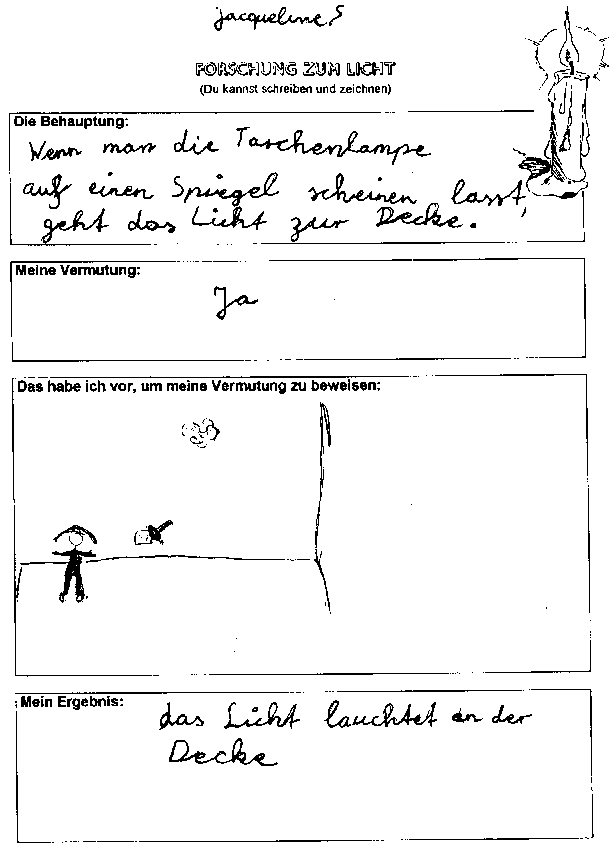 Jacqueline S
FORSCHUNG ZUM LICHT
(Du kannst schreiben und zeichnen)
Die Behauptung:
Wenn man die Taschenlampe
auf einen Spiegel scheinen lasst,
geht das Licht zur Decke.
Meine Vermutung:
Ja
Das habe ich vor, um meine Vermutung zu beweisen:
Mein Ergebnis:
das Licht lauchtet an der
Decke